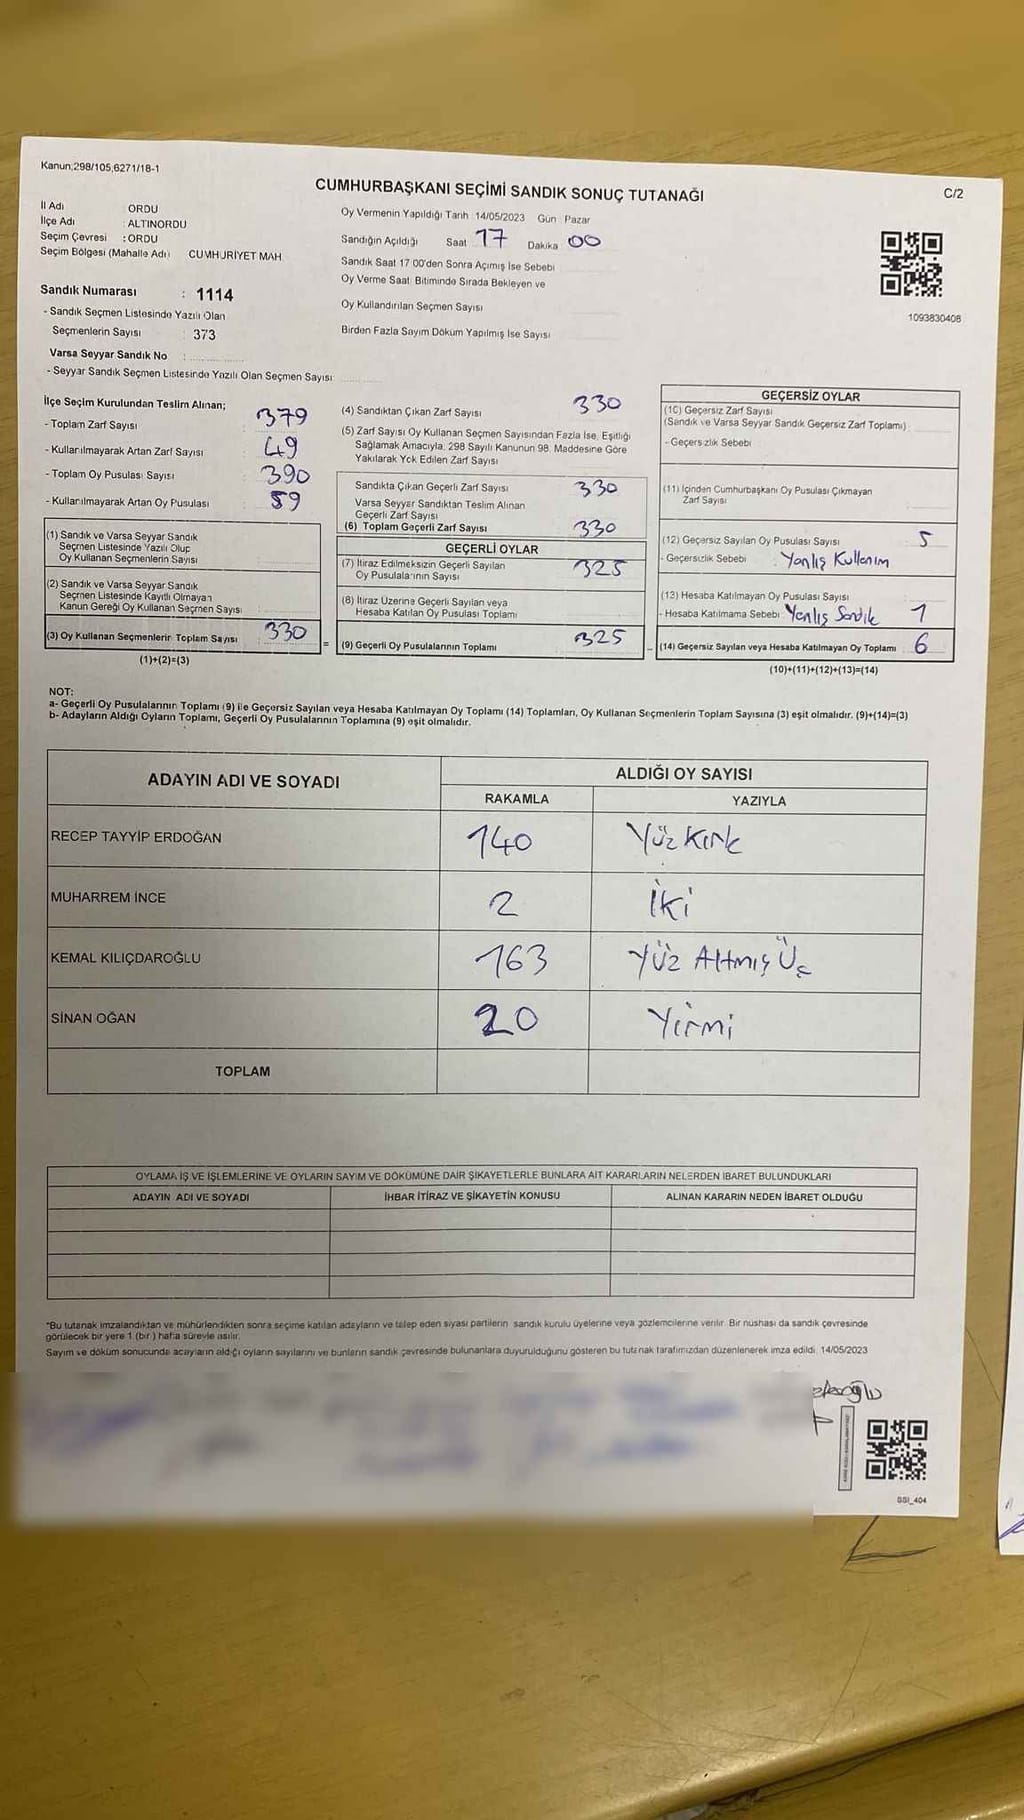 Kanun;298/105;6271/18-1
CUMHURBAŞKANI SEÇİMİ SANDIK SONUÇ TUTANAĞI
C/2
İl Adı : ORDU
İlçe Adı : ALTINORDU
Seçim Çevresi : ORDU
Seçim Bölgesi (Mahalle Adı) CUMHURİYET MAH.
Sandık Numarası : 1114
- Sandık Seçmen Listesinde Yazılı Olan
Seçmenlerin Sayısı : 373
Varsa Seyyar Sandık No :
- Seyyar Sandık Seçmen Listesinde Yazılı Olan Seçmen Sayısı
Oy Vermenin Yapıldığı Tarih 14/05/2023 Gün Pazar
Sandığın Açıldığı Saat 17 Dakika 00
Sandık Saat 17 00'den Sonra Açımış İse Sebebi
Oy Verme Saat Bitiminde Sırada Bekleyen ve
Oy Kullandırılan Seçmen Sayısı
Birden Fazla Sayım Döküm Yapılmış İse Sayısı
1093830408
İlçe Seçim Kurulundan Teslim Alınan;
- Toplam Zarf Sayısı : 379
- Kullanılmayarak Artan Zarf Sayısı : 49
- Toplam Oy Pusulası Sayısı : 390
- Kullanılmayarak Artan Oy Pusulası : 59
(1) Sandık ve Varsa Seyyar Sandık
Seçmen Listesinde Yazılı Olup
Oy Kullanan Seçmenlerin Sayısı
(2) Sandık ve Varsa Seyyar Sandık
Seçmen Listesinde Kayıtlı Olmayan
Kanun Gereği Oy Kullanan Seçmen Sayısı
(3) Oy Kullanan Seçmenlerin Toplam Sayısı 330
(1)+(2)=(3)
(4) Sandıktan Çıkan Zarf Sayısı 330
(5) Zarf Sayısı Oy Kullanan Seçmen Sayısından Fazla İse, Eşitliği
Sağlamak Amacıyla, 298 Sayılı Kanunun 98. Maddesine Göre
Yakılarak Yok Edilen Zarf Sayısı
Sandıkta Çıkan Geçerli Zarf Sayısı 330
Varsa Seyyar Sandıktan Teslim Alınan
Geçerli Zarf Sayısı
(6) Toplam Geçerli Zarf Sayısı 330
GEÇERLİ OYLAR
(7) İtiraz Edilmeksizin Geçerli Sayılan
Oy Pusulalarının Sayısı 325
(8) İtiraz Üzerine Geçerli Sayılan veya
Hesaba Katılan Oy Pusulası Toplamı
= (9) Geçerli Oy Pusulalarının Toplamı 325
GEÇERSİZ OYLAR
(10) Geçersiz Zarf Sayısı
(Sandık ve Varsa Seyyar Sandık Geçersiz Zarf Toplamı)
- Geçersizlik Sebebi
(11) İçinden Cumhurbaşkanı Oy Pusulası Çıkmayan
Zarf Sayısı
(12) Geçersiz Sayılan Oy Pusulası Sayısı 5
- Geçersizlik Sebebi : Yanlış Kullanım
(13) Hesaba Katılmayan Oy Pusulası Sayısı
- Hesaba Katılmama Sebebi : Yanlış Sandık 1
(14) Geçersiz Sayılan veya Hesaba Katılmayan Oy Toplamı 6
(10)+(11)+(12)+(13)=(14)
NOT:
a- Geçerli Oy Pusulalarının Toplamı (9) ile Geçersiz Sayılan veya Hesaba Katılmayan Oy Toplamı (14) Toplamları, Oy Kullanan Seçmenlerin Toplam Sayısına (3) eşit olmalıdır. (9)+(14)=(3)
b- Adayların Aldığı Oyların Toplamı, Geçerli Oy Pusulalarının Toplamına (9) eşit olmalıdır.
ADAYIN ADI VE SOYADI
ALDIĞI OY SAYISI
RAKAMLA YAZIYLA
RECEP TAYYİP ERDOĞAN 140 Yüz Kırk
MUHARREM İNCE 2 İki
KEMAL KILIÇDAROĞLU 163 Yüz Altmış Üç
SİNAN OĞAN 20 Yirmi
TOPLAM
OYLAMA İŞ VE İŞLEMLERİNE VE OYLARIN SAYIM VE DÖKÜMÜNE DAİR ŞİKAYETLERLE BUNLARA AİT KARARLARIN NELERDEN İBARET BULUNDUKLARI
ADAYIN ADI VE SOYADI İHBAR İTİRAZ VE ŞİKAYETİN KONUSU ALINAN KARARIN NEDEN İBARET OLDUĞU
*Bu tutanak imzalandıktan ve mühürlendikten sonra seçime katılan adayların ve talep eden siyasi partilerin sandık kurulu üyelerine veya gözlemcilerine verilir. Bir nüshası da sandık çevresinde
görülecek bir yere 1 (bir) hafta süreyle asılır.
Sayım ve döküm sonucunda adayların aldığı oyların sayılarını ve bunların sandık çevresinde bulunanlara duyurulduğunu gösteren bu tutanak tarafımızdan düzenlenerek imza edildi. 14/05/2023
SSI_404